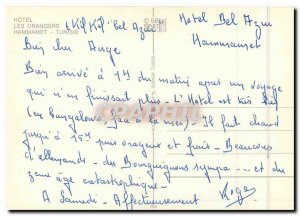 HOTEL
LES ORANGERS
HAMMAMET - TUNISIE
"Kil Kil" bel Azur
Hotel Bel Azur
Hammamet
Bien arrivé à 1H du matin après un voyage
qui n'en finissait plus - L'Hotel est très bien
(en bungalows, face à la mer) - Il fait chaud
jusqu'à 15H puis orageux et frais - Beaucoup
d'allemands - des Bourguignons sympa... et du
3ème âge catastrophique -
A Samedi - Affectueusement